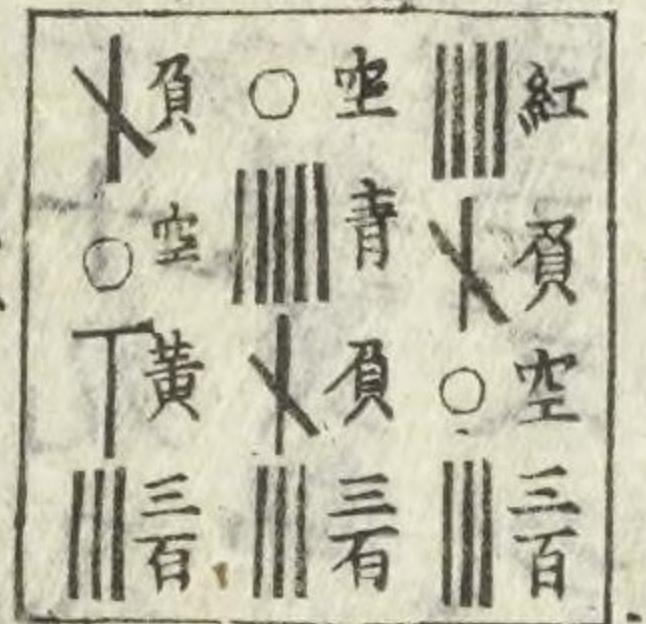 紅負空三百
空青負三石
負空黃三百